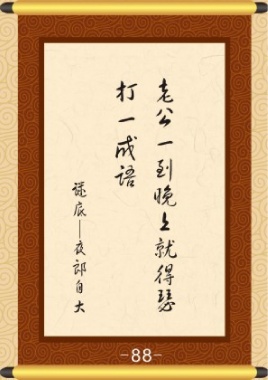 老公一到晚上就得瑟
打一成语
谜底——夜郎自大
-88-